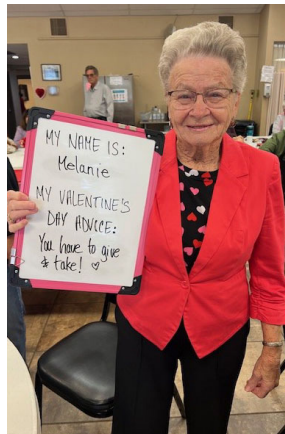 MY NAME IS:
Melanie
MY VALENTINE'S
DAY ADVICE:
You have to give
& take! ♡